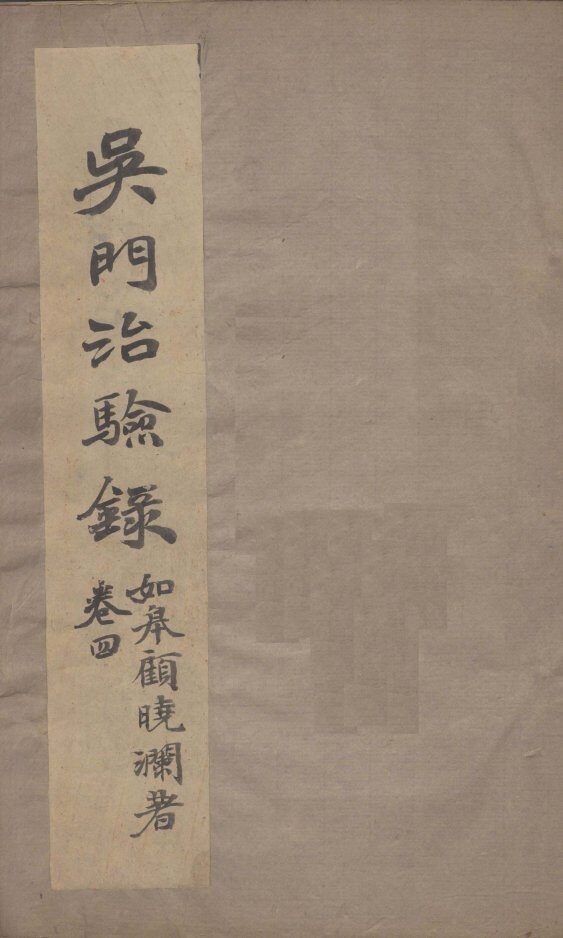 吳門治驗錄
如皋顧曉瀾著
卷四